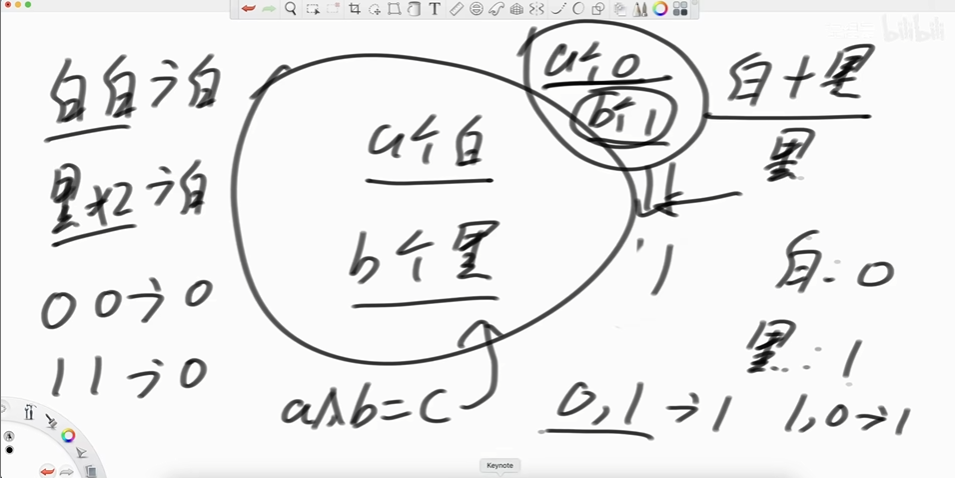 白白→白
黑×2→白
00→0
11→0
a个白
b个黑
a∧b=C
a个0
b个1
1
白+黑
黑
白:0
黑:1
0,1→1
1,0→1
Keynote
bilibili